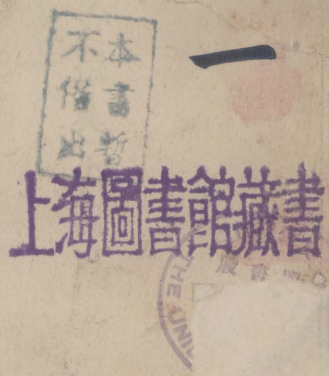 一
本書暫
不借出
上海圖書館藏書
THE UNI